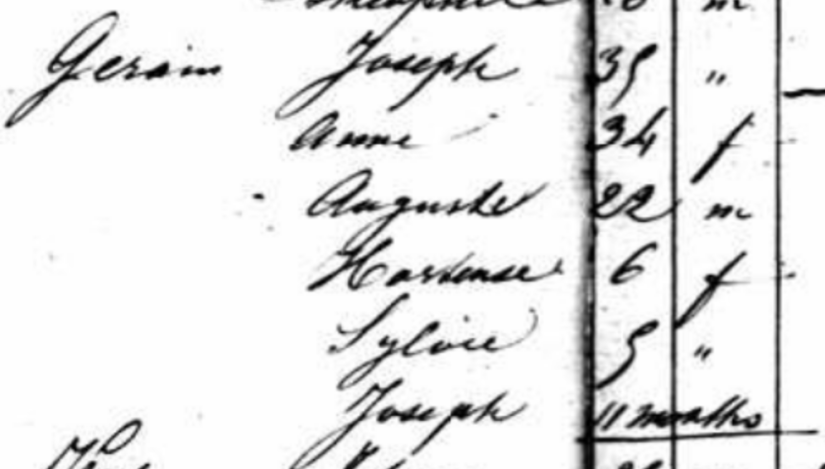 Gerain Joseph 35 "
Anne 34 f
Auguste 22 m
Hortense 6 f
Sylvie 5 "
Joseph 11 months